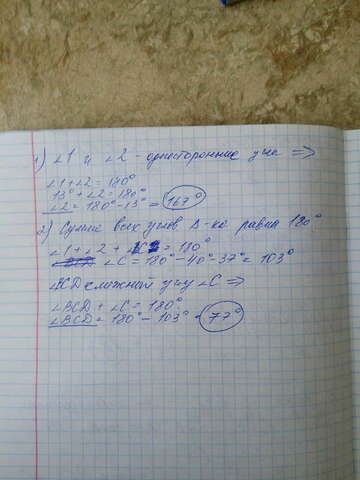 1) ∠1 и ∠2 - односторонние углы ⇒
∠1+∠2 = 180°
13°+∠2 = 180°
∠2 = 180° - 13° = 167°
2) Сумма всех углов Δ-ка равна 180°
∠1 + ∠2 + ∠C = 180°
∠C = 180° - 40° - 37° = 103°
∠BCD смежный углу ∠C ⇒
∠BCD + ∠C = 180°
∠BCD = 180° - 103° = 77°